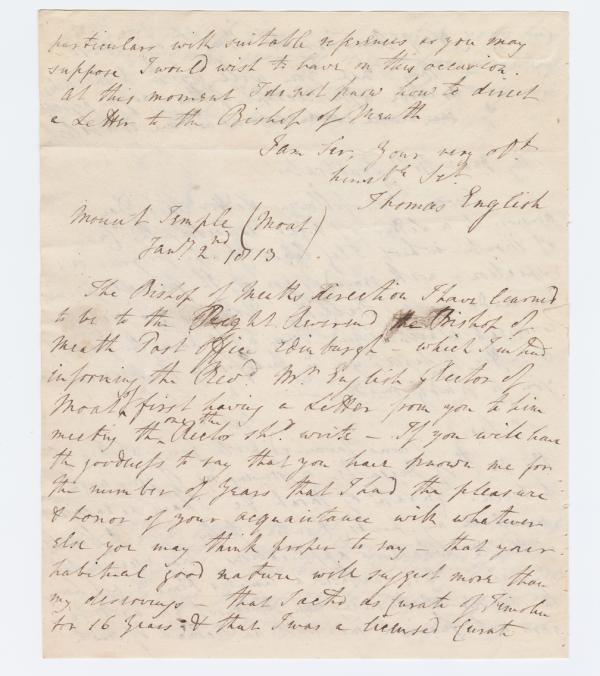 particulars with suitable references as you may
suppose I would wish to have on this occasion.
At this moment I do not know how to direct
a Letter to the Bishop of Meath
I am Sir, Your very obt
humble Sert
Thomas English
Mount Temple (Moat)
Jany 2nd 1813
The Bishop of Meaths direction I have learned
to be to the Right Reverend the Bishop of
Meath Post Office Edinburgh which I intend
informing the Revd Mr English Rector of
Moat of first having a Letter from you to him
meeting the one the Rector shd write - If you will have
the goodness to say that you have known me for
the number of Years that I had the pleasure
& honor of your acquaintance with whatever
else you may think proper to say - that your
habitual good nature will suggest more than
my deservings - that I acted as Curate of Timolin
for 16 Years & that I was a licensed Curate